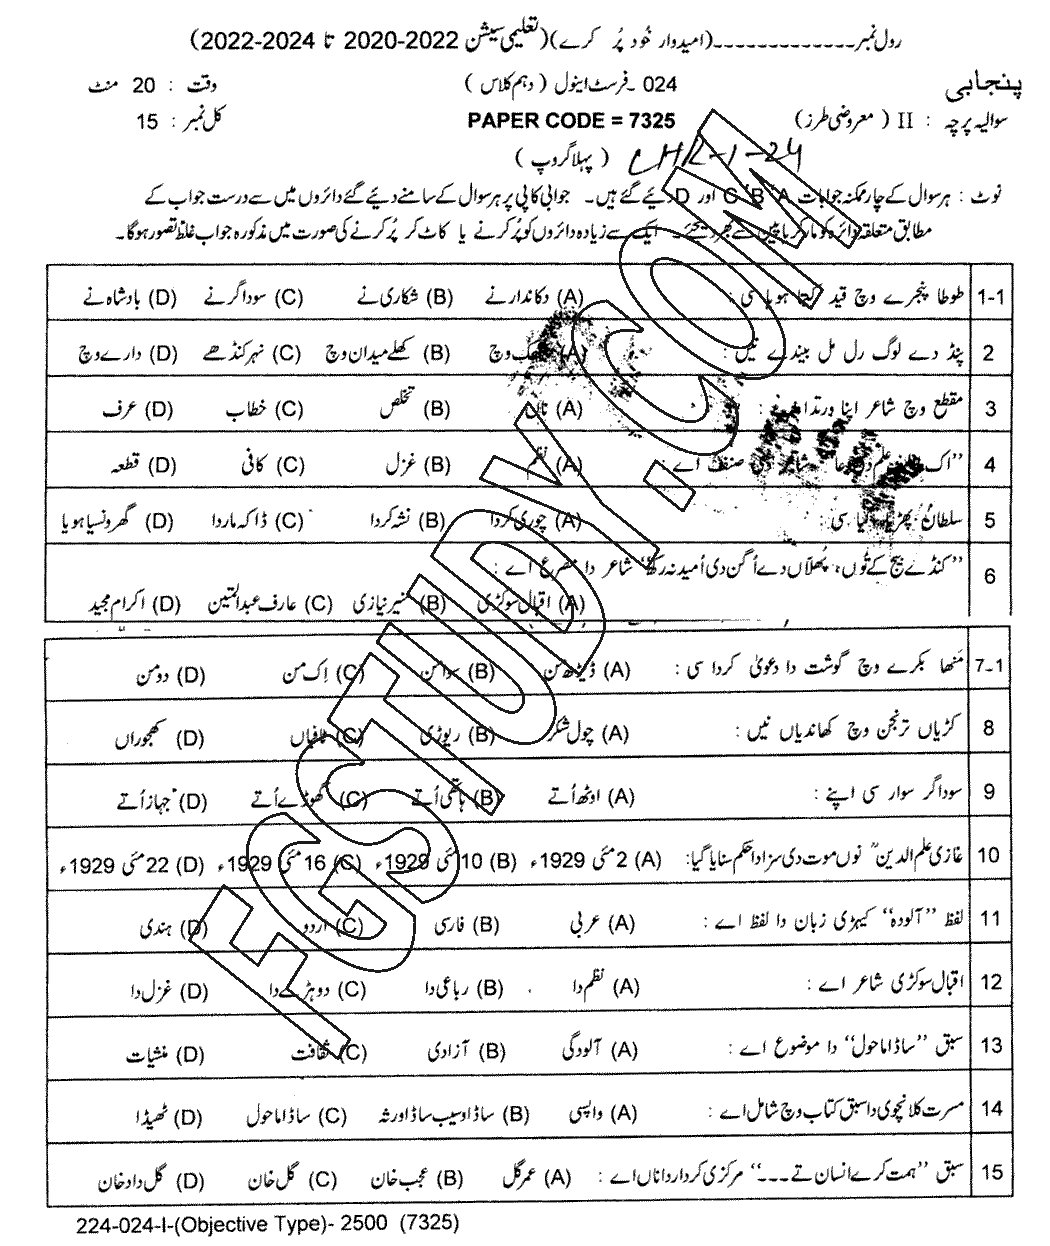 رول نمبر -------------(امیدوار خود پُر کرے)(تعلیمی سیشن 2022-2020 تا 2024-2022)
پنجابی 024 ۔فرسٹ اینول (دہم کلاس) وقت : 20 منٹ
سوالیہ پرچہ : II (معروضی طرز) PAPER CODE = 7325 کل نمبر : 15
(پہلا گروپ) LHR-1-24
نوٹ : ہر سوال کے چار ممکنہ جوابات A، B، C اور D دیئے گئے ہیں۔ جوابی کاپی پر ہر سوال کے سامنے دیئے گئے دائروں میں سے درست جواب کے
مطابق متعلقہ دائرہ کو مارکر یا پین سے بھر دیجئے۔ ایک سے زیادہ دائروں کو پُر کرنے یا کاٹ کر پُر کرنے کی صورت میں مذکورہ جواب غلط تصور ہو گا۔
1-1 طوطا پنجرے وچ قید کیتا ہویا سی : (A) دکاندار نے (B) شکاری نے (C) سوداگر نے (D) بادشاہ نے
2 پنڈ دے لوگ رل مل بیندے نیں : (A) وچ (B) کھلے میدان وچ (C) نہر کنڈھے (D) دارے وچ
3 مقطع وچ شاعر اپنا ورتدا : (A) ناں (B) تخلص (C) خطاب (D) عرف
4 "اک صنف اے : (A) نظم (B) غزل (C) کافی (D) قطعہ
5 سلطان پھڑیا گیا سی : (A) چوری کردا (B) نشہ کردا (C) ڈاکہ ماردا (D) گھروں نسیا ہویا
6 "کنڈے بیج کے توں، پھلاں دے اُگن دی اُمید نہ رکھ" شاعر دا مصرع اے :
(A) اقبال سوکڑی (B) منیر نیازی (C) عارف عبدالمتین (D) اکرام مجید
7-1 مَنھا بکرے وچ گوشت دا دعویٰ کردا سی : (A) ڈیڑھ من (B) سوا من (C) اِک من (D) دو من
8 کڑیاں ترنجن وچ کھاندیاں نیں : (A) چول شکر (B) ریوڑی (C) پھلیاں (D) کھجوراں
9 سوداگر سوار سی اپنے : (A) اوٹھ اُتے (B) ہاتھی اُتے (C) گھوڑے اُتے (D) جہاز اُتے
10 غازی علم الدینؒ نوں موت دی سزا دا حکم سنایا گیا: (A) 2 مئی 1929ء (B) 10 مئی 1929ء (C) 16 مئی 1929ء (D) 22 مئی 1929ء
11 لفظ "آلودہ" کیہڑی زبان دا لفظ اے : (A) عربی (B) فارسی (C) اردو (D) ہندی
12 اقبال سوکڑی شاعر اے : (A) نظم دا (B) رباعی دا (C) دوہڑے دا (D) غزل دا
13 سبق "ساڈا ماحول" دا موضوع اے : (A) آلودگی (B) آزادی (C) ثقافت (D) منشیات
14 مسرت کلانچوی دا سبق کتاب وچ شامل اے : (A) واپسی (B) ساڈا وسیب ساڈا ورثہ (C) ساڈا ماحول (D) ٹھیڈا
15 سبق "ہمت کرے انسان تے ۔۔۔" مرکزی کردار دا ناں اے : (A) عمر گل (B) عجب خان (C) گل خان (D) گل داد خان
224-024-I-(Objective Type)- 2500 (7325)
FGSTUDY.COM